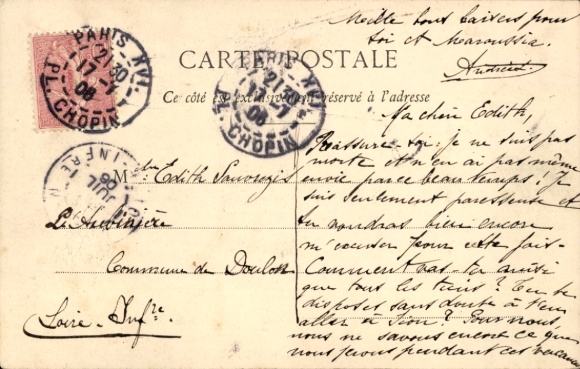 Mille bons baisers pour
toi et Maroussia.
Andrée.
PARIS XVI
21 30
17 - 7
06
PL. CHOPIN
CARTE POSTALE
Ce côté est exclusivement réservé à l'adresse
PARIS XVI
21 30
17 - 7
06
PL. CHOPIN
Ma chère Edith,
Rassure-toi je ne suis pas
morte et n'en ai pas même
envie par ce beau temps! Je
suis seulement paresseuse et
tu voudras bien encore
m'excuser pour cette fois-
Comment vas-tu ainsi
que tous les tiens? Tu te
disposes sans doute à t'en
aller à Sion? Pour nous,
nous ne savons encore ce que
nous ferons pendant ces vacances
Mlle Edith
Commune de Doulon
Loire-Infre
JUIL
06
INFRE